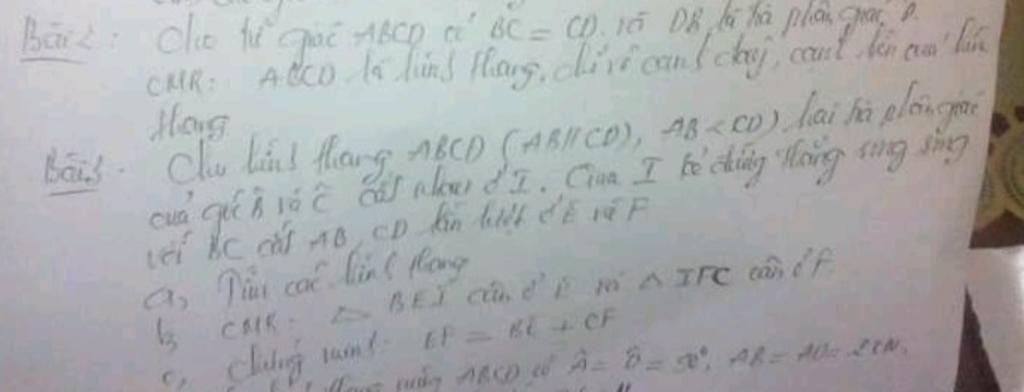 Bài 2: Cho tứ giác ABCD có BC = CD và DB là tia phân giác D.
CMR: ABCD là hình thang, chỉ rõ cạnh đáy, cạnh bên của hình
thang
Bài 3. Cho hình thang ABCD (AB//CD), AB < CD) hai tia phân giác
của góc B và C cắt nhau ở I. Qua I kẻ đường thẳng song song
với BC cắt AB, CD lần lượt ở E và F
a, Tìm các hình thang
b, CMR: △ BEI cân ở E và △ IFC cân ở F
c, Chứng minh: EF = BE + CF
thang vuông ABCD có Â = D̂ = 90°, AB = AD = 2cm,